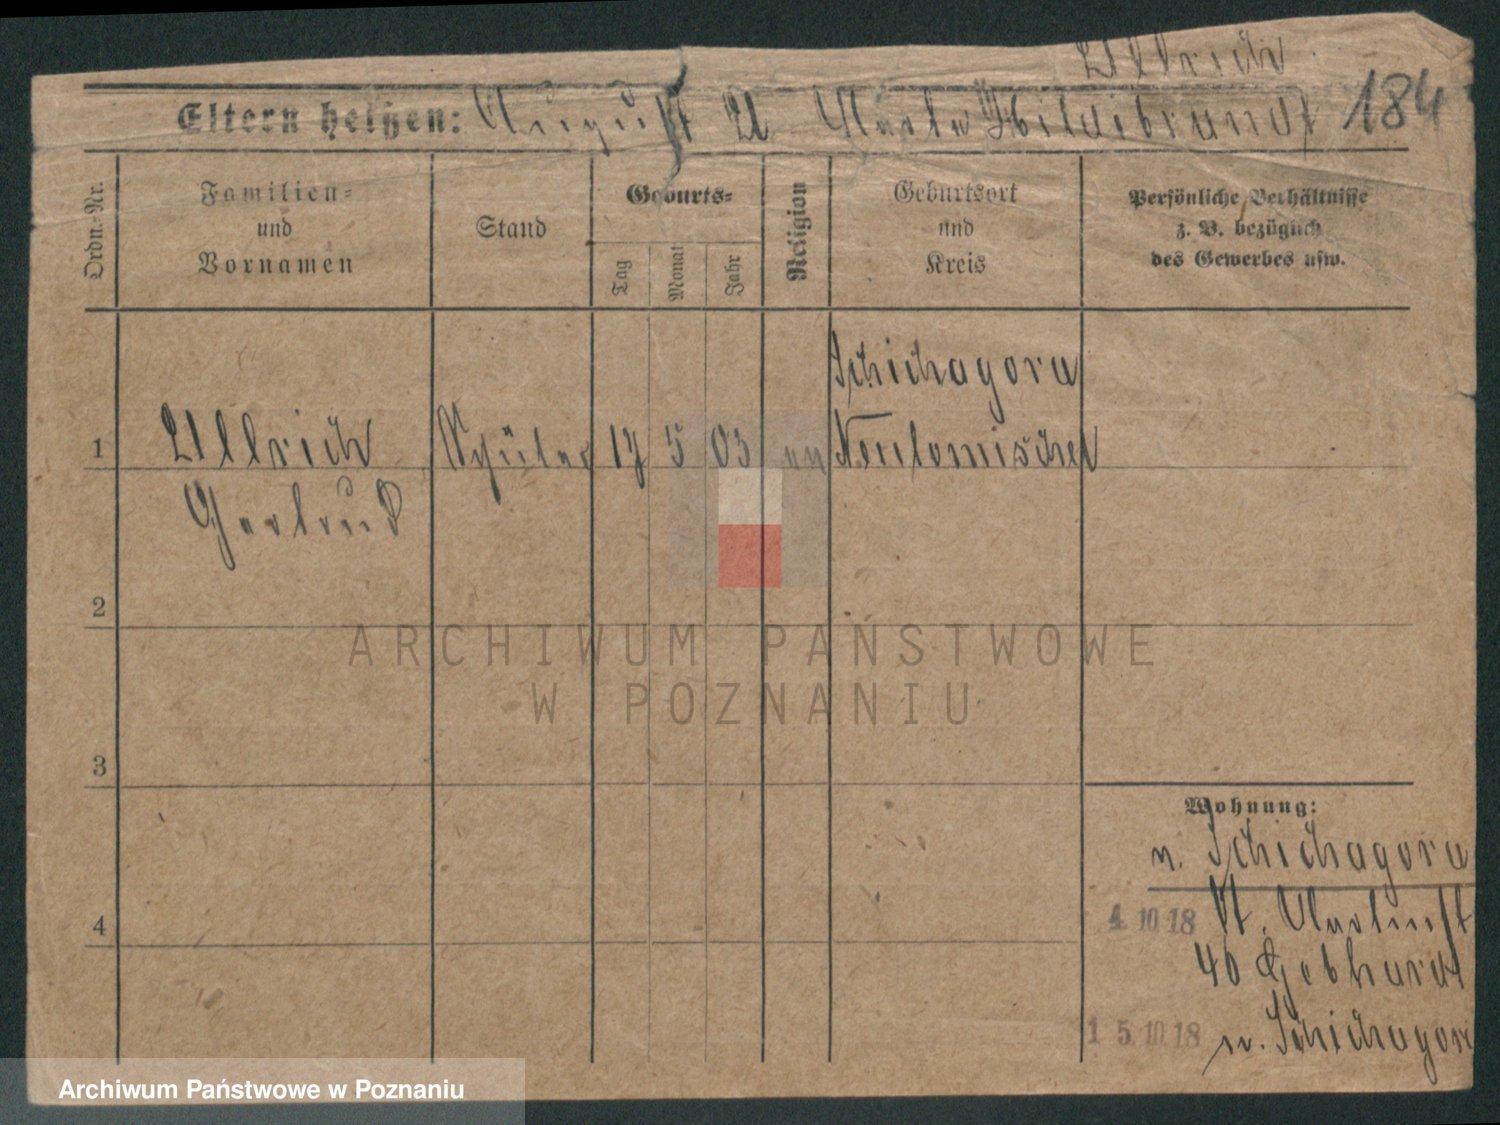 Ullrich
Eltern heißen: August u Hildebrandt 184
Ordn.-Nr.
Familien-
und
Vornamen
Stand
Geburts-
Tag
Monat
Jahr
Religion
Geburtsort
und
Kreis
Persönliche Verhältnisse
z. B. bezüglich
des Gewerbes usw.
Schichagora
1 Ullrich Schüler 17 5 03 Neutomischel
Gertrud
2
3
4
Wohnung:
n. Schichagora
4. 10 18 St. Martinst
40 Gebhardt
1 5. 10. 18 n. Schichagora
ARCHIWUM PAŃSTWOWE
W POZNANIU
Archiwum Państwowe w Poznaniu